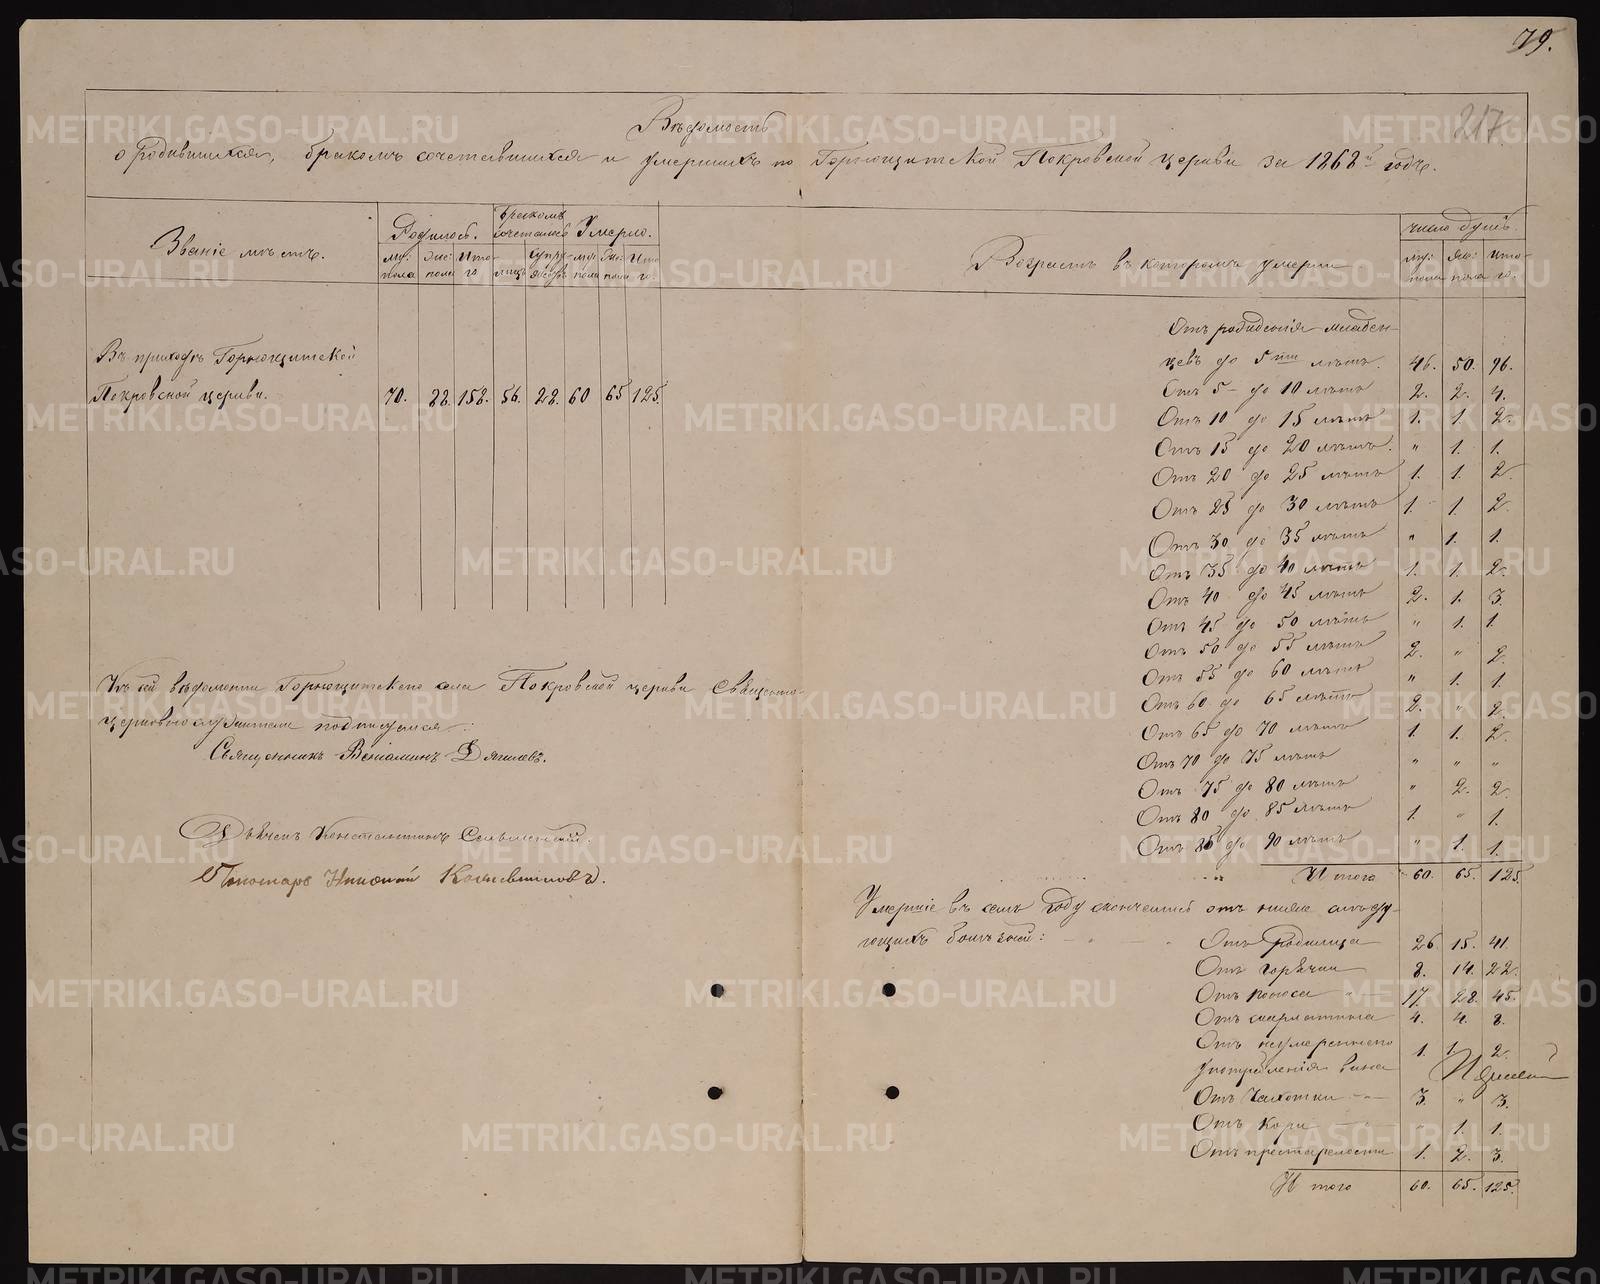 79.
217
Вѣдомость
о родившихся, бракомъ сочетавшихся и умершихъ по Горнощитской Покровской церкви за 1868й годъ.
Званіе мѣстъ.
Родилось.
Бракомъ сочетались
Умерло.
Возрастъ въ которомъ умерли
число душъ.
му: пола
жен: пола
Ито-го
лицъ
супру-жествъ
му: пола
жен: пола
Ито-го.
му: пола
жен: пола
Ито-го.
Въ приходѣ Горнощитской
Покровской церкви. 70. 88. 158. 56. 28. 60 65 125.
Отъ рожденія младен-
цевъ до 5ти лѣтъ. 46. 50. 96.
Отъ 5 до 10 лѣтъ 2. 2. 4.
Отъ 10 до 15 лѣтъ 1. 1. 2.
Отъ 15 до 20 лѣтъ. " 1. 1.
Отъ 20 до 25 лѣтъ 1. 1. 2
Отъ 25 до 30 лѣтъ 1. 1. 2.
Отъ 30 до 35 лѣтъ " 1. 1.
Отъ 35 до 40 лѣтъ 1. 1. 2.
Отъ 40 до 45 лѣтъ 2. 1. 3.
Отъ 45 до 50 лѣтъ " 1. 1.
Отъ 50 до 55 лѣтъ 2. " 2.
Отъ 55 до 60 лѣтъ " 1. 1.
Отъ 60 до 65 лѣтъ 2. " 2.
Отъ 65 до 70 лѣтъ 1. 1. 2.
Отъ 70 до 75 лѣтъ " " "
Отъ 75 до 80 лѣтъ " 2. 2.
Отъ 80 до 85 лѣтъ 1. " 1.
Отъ 85 до 90 лѣтъ " 1. 1.
Итого 60. 65. 125.
Къ сей вѣдомости Горнощитскаго села Покровской церкви Священно-
церковнослужители подписуемся:
Священникъ Веніаминъ Дягилевъ.
Дьячекъ Константинъ
Пономарь
Умершіе въ семъ году скончались отъ ниже слѣду-
ющихъ болѣзней: Отъ родимца 26. 15. 41.
Отъ горячки 8. 14. 22.
Отъ поноса 17. 28. 45.
Отъ скарлатины 4. 4. 8.
Отъ неумереннаго
употребленія вина 1. 1. 2.
Отъ чахотки 3. " 3.
Отъ кори " 1. 1.
Отъ престарелости 1. 2. 3.
Итого 60. 65. 125.
METRIKI.GASO-URAL.RU